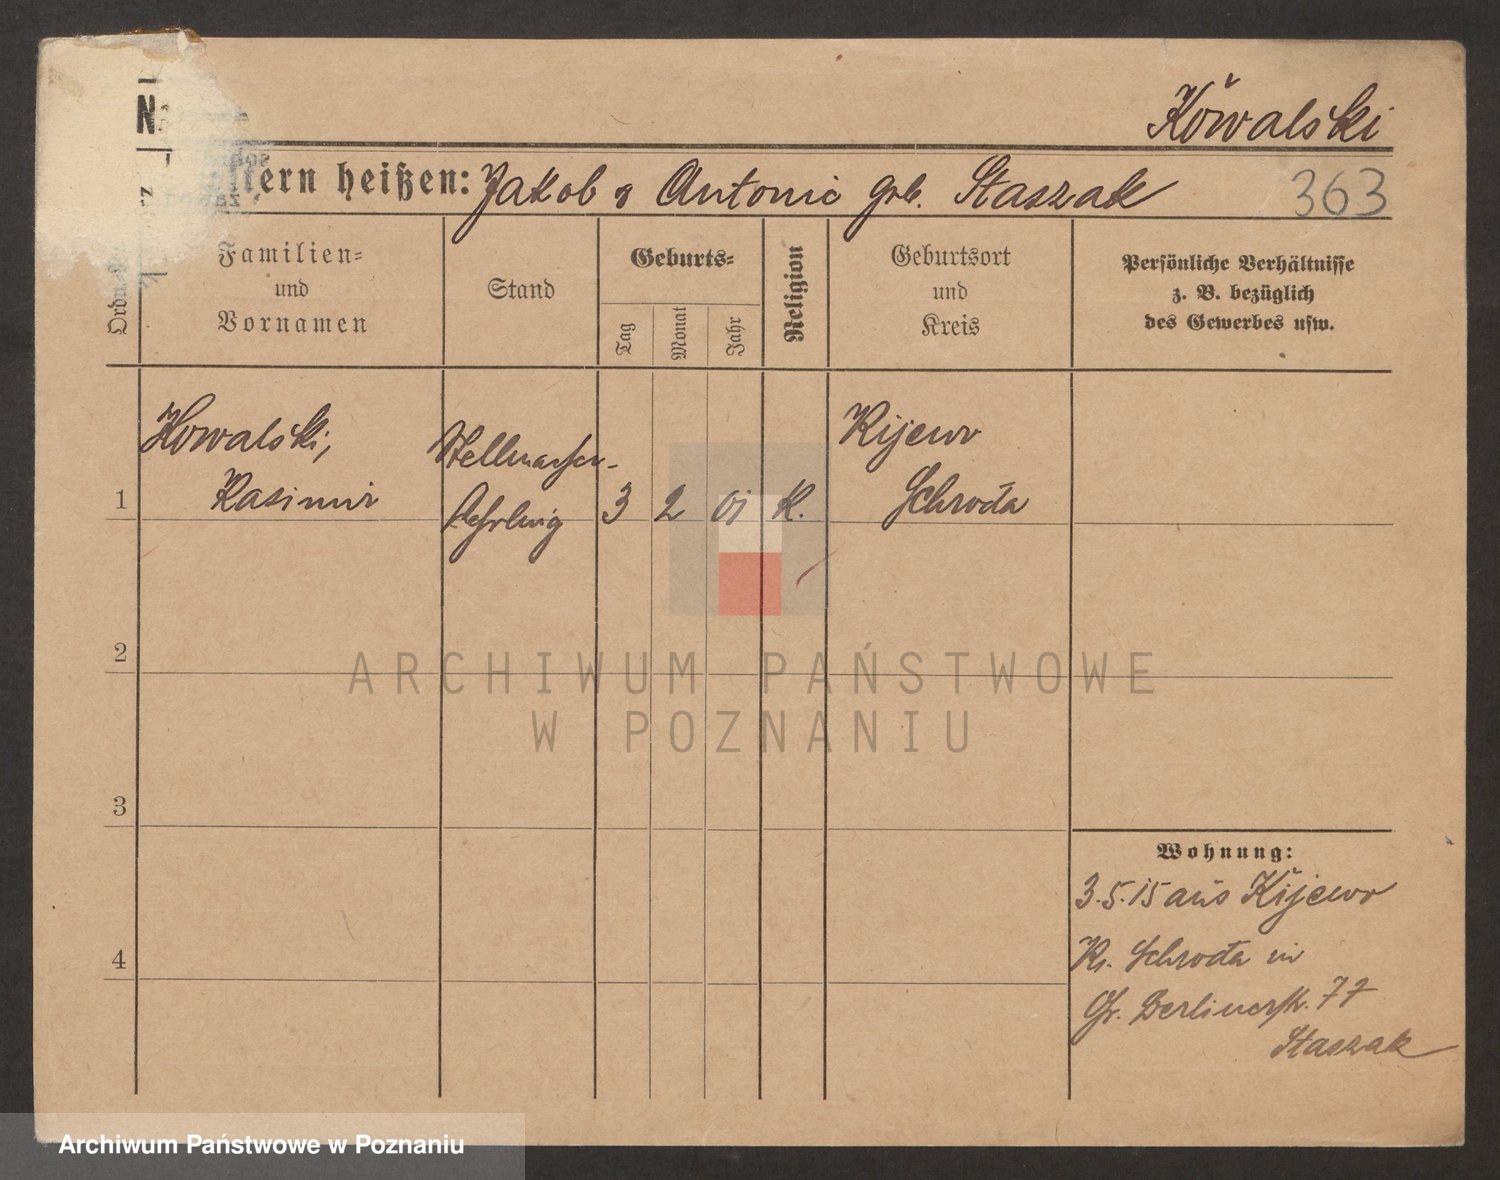 Kowalski
ltern heißen: Jakob & Antonie geb. Staszak
363
Familien=
und
Vornamen
Stand
Geburts=
Tag
Monat
Jahr
Religion
Geburtsort
und
Kreis
Persönliche Verhältnisse
z. B. bezüglich
des Gewerbes usw.
1
Kowalski,
Kasimir
Stellmacher-
Lehrling
3
2
01
K.
Kijewo
Schroda
2
3
4
Wohnung:
3.5.15 aus Kijewo
Kr. Schroda in
Gr. Berlinerstr. 77
Staszak
ARCHIWUM PAŃSTWOWE
W POZNANIU
Archiwum Państwowe w Poznaniu